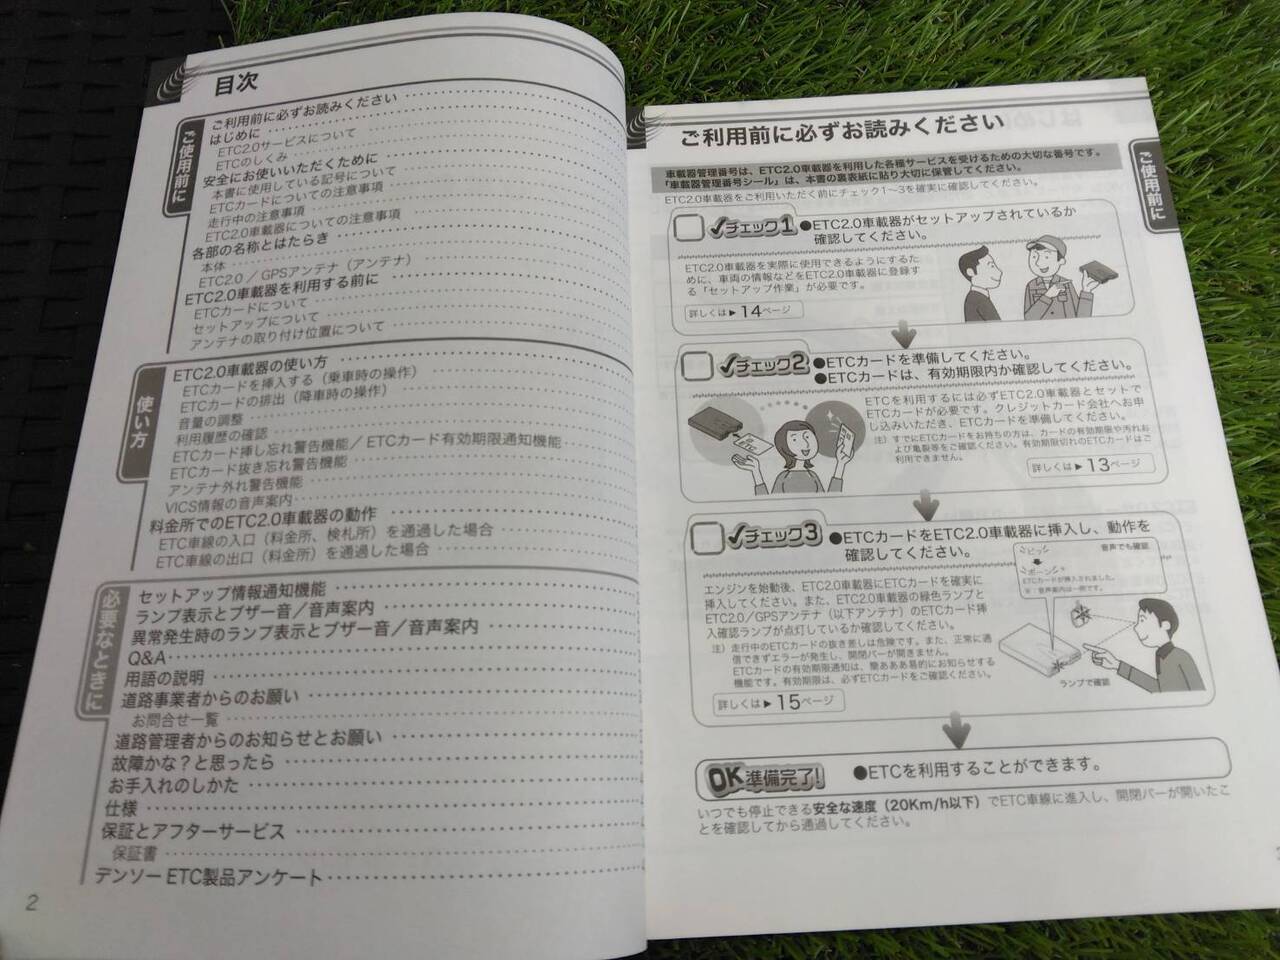 目次
ご使用前に
ご利用前に必ずお読みください
はじめに
ETC2.0サービスについて
ETCのしくみ
安全にお使いいただくために
本書に使用している記号について
ETCカードについての注意事項
走行中の注意事項
ETC2.0車載器についての注意事項
各部の名称とはたらき
本体
ETC2.0／GPSアンテナ（アンテナ）
ETC2.0車載器を利用する前に
ETCカードについて
セットアップについて
アンテナの取り付け位置について
使い方
ETC2.0車載器の使い方
ETCカードを挿入する（乗車時の操作）
ETCカードの排出（降車時の操作）
音量の調整
利用履歴の確認
ETCカード挿し忘れ警告機能／ETCカード有効期限通知機能
ETCカード抜き忘れ警告機能
アンテナ外れ警告機能
VICS情報の音声案内
料金所でのETC2.0車載器の動作
ETC車線の入口（料金所、検札所）を通過した場合
ETC車線の出口（料金所）を通過した場合
必要なときに
セットアップ情報通知機能
ランプ表示とブザー音／音声案内
異常発生時のランプ表示とブザー音／音声案内
Q&A
用語の説明
道路事業者からのお願い
お問合せ一覧
道路管理者からのお知らせとお願い
故障かな？と思ったら
お手入れのしかた
仕様
保証とアフターサービス
保証書
デンソー ETC製品アンケート
2
ご利用前に必ずお読みください
ご使用前に
車載器管理番号は、ETC2.0車載器を利用した各種サービスを受けるための大切な番号です。
「車載器管理番号シール」は、本書の裏表紙に貼り大切に保管してください。
ETC2.0車載器をご利用いただく前にチェック1~3を確実に確認してください。
チェック1 ●ETC2.0車載器がセットアップされているか
確認してください。
ETC2.0車載器を実際に使用できるようにするた
めに、車両の情報などをETC2.0車載器に登録す
る「セットアップ作業」が必要です。
詳しくは▶14ページ
チェック2 ●ETCカードを準備してください。
●ETCカードは、有効期限内か確認してください。
ETCを利用するには必ずETC2.0車載器とセットで
ETCカードが必要です。クレジットカード会社へお申
し込みいただき、ETCカードを準備してください。
注）すでにETCカードをお持ちの方は、カードの有効期限や汚れお
よび亀裂等をご確認ください。有効期限切れのETCカードはご
利用できません。
詳しくは▶13ページ
チェック3 ●ETCカードをETC2.0車載器に挿入し、動作を
確認してください。
エンジンを始動後、ETC2.0車載器にETCカードを確実に
挿入してください。また、ETC2.0車載器の緑色ランプと
ETC2.0/GPSアンテナ（以下アンテナ）のETCカード挿
入確認ランプが点灯しているか確認してください。
注）走行中のETCカードの抜き差しは危険です。また、正常に通
信できずエラーが発生し、開閉バーが開きません。
ETCカードの有効期限通知は、簡ああ易的にお知らせする
機能です。有効期限は、必ずETCカードをご確認ください。
詳しくは▶15ページ
ピッ
音声でも確認
ポーン♪
ETCカードが挿入されました。
※：音声案内は一例です。
ランプで確認
OK 準備完了！ ●ETCを利用することができます。
いつでも停止できる安全な速度（20Km/h以下）でETC車線に進入し、開閉バーが開いたこ
とを確認してから通過してください。